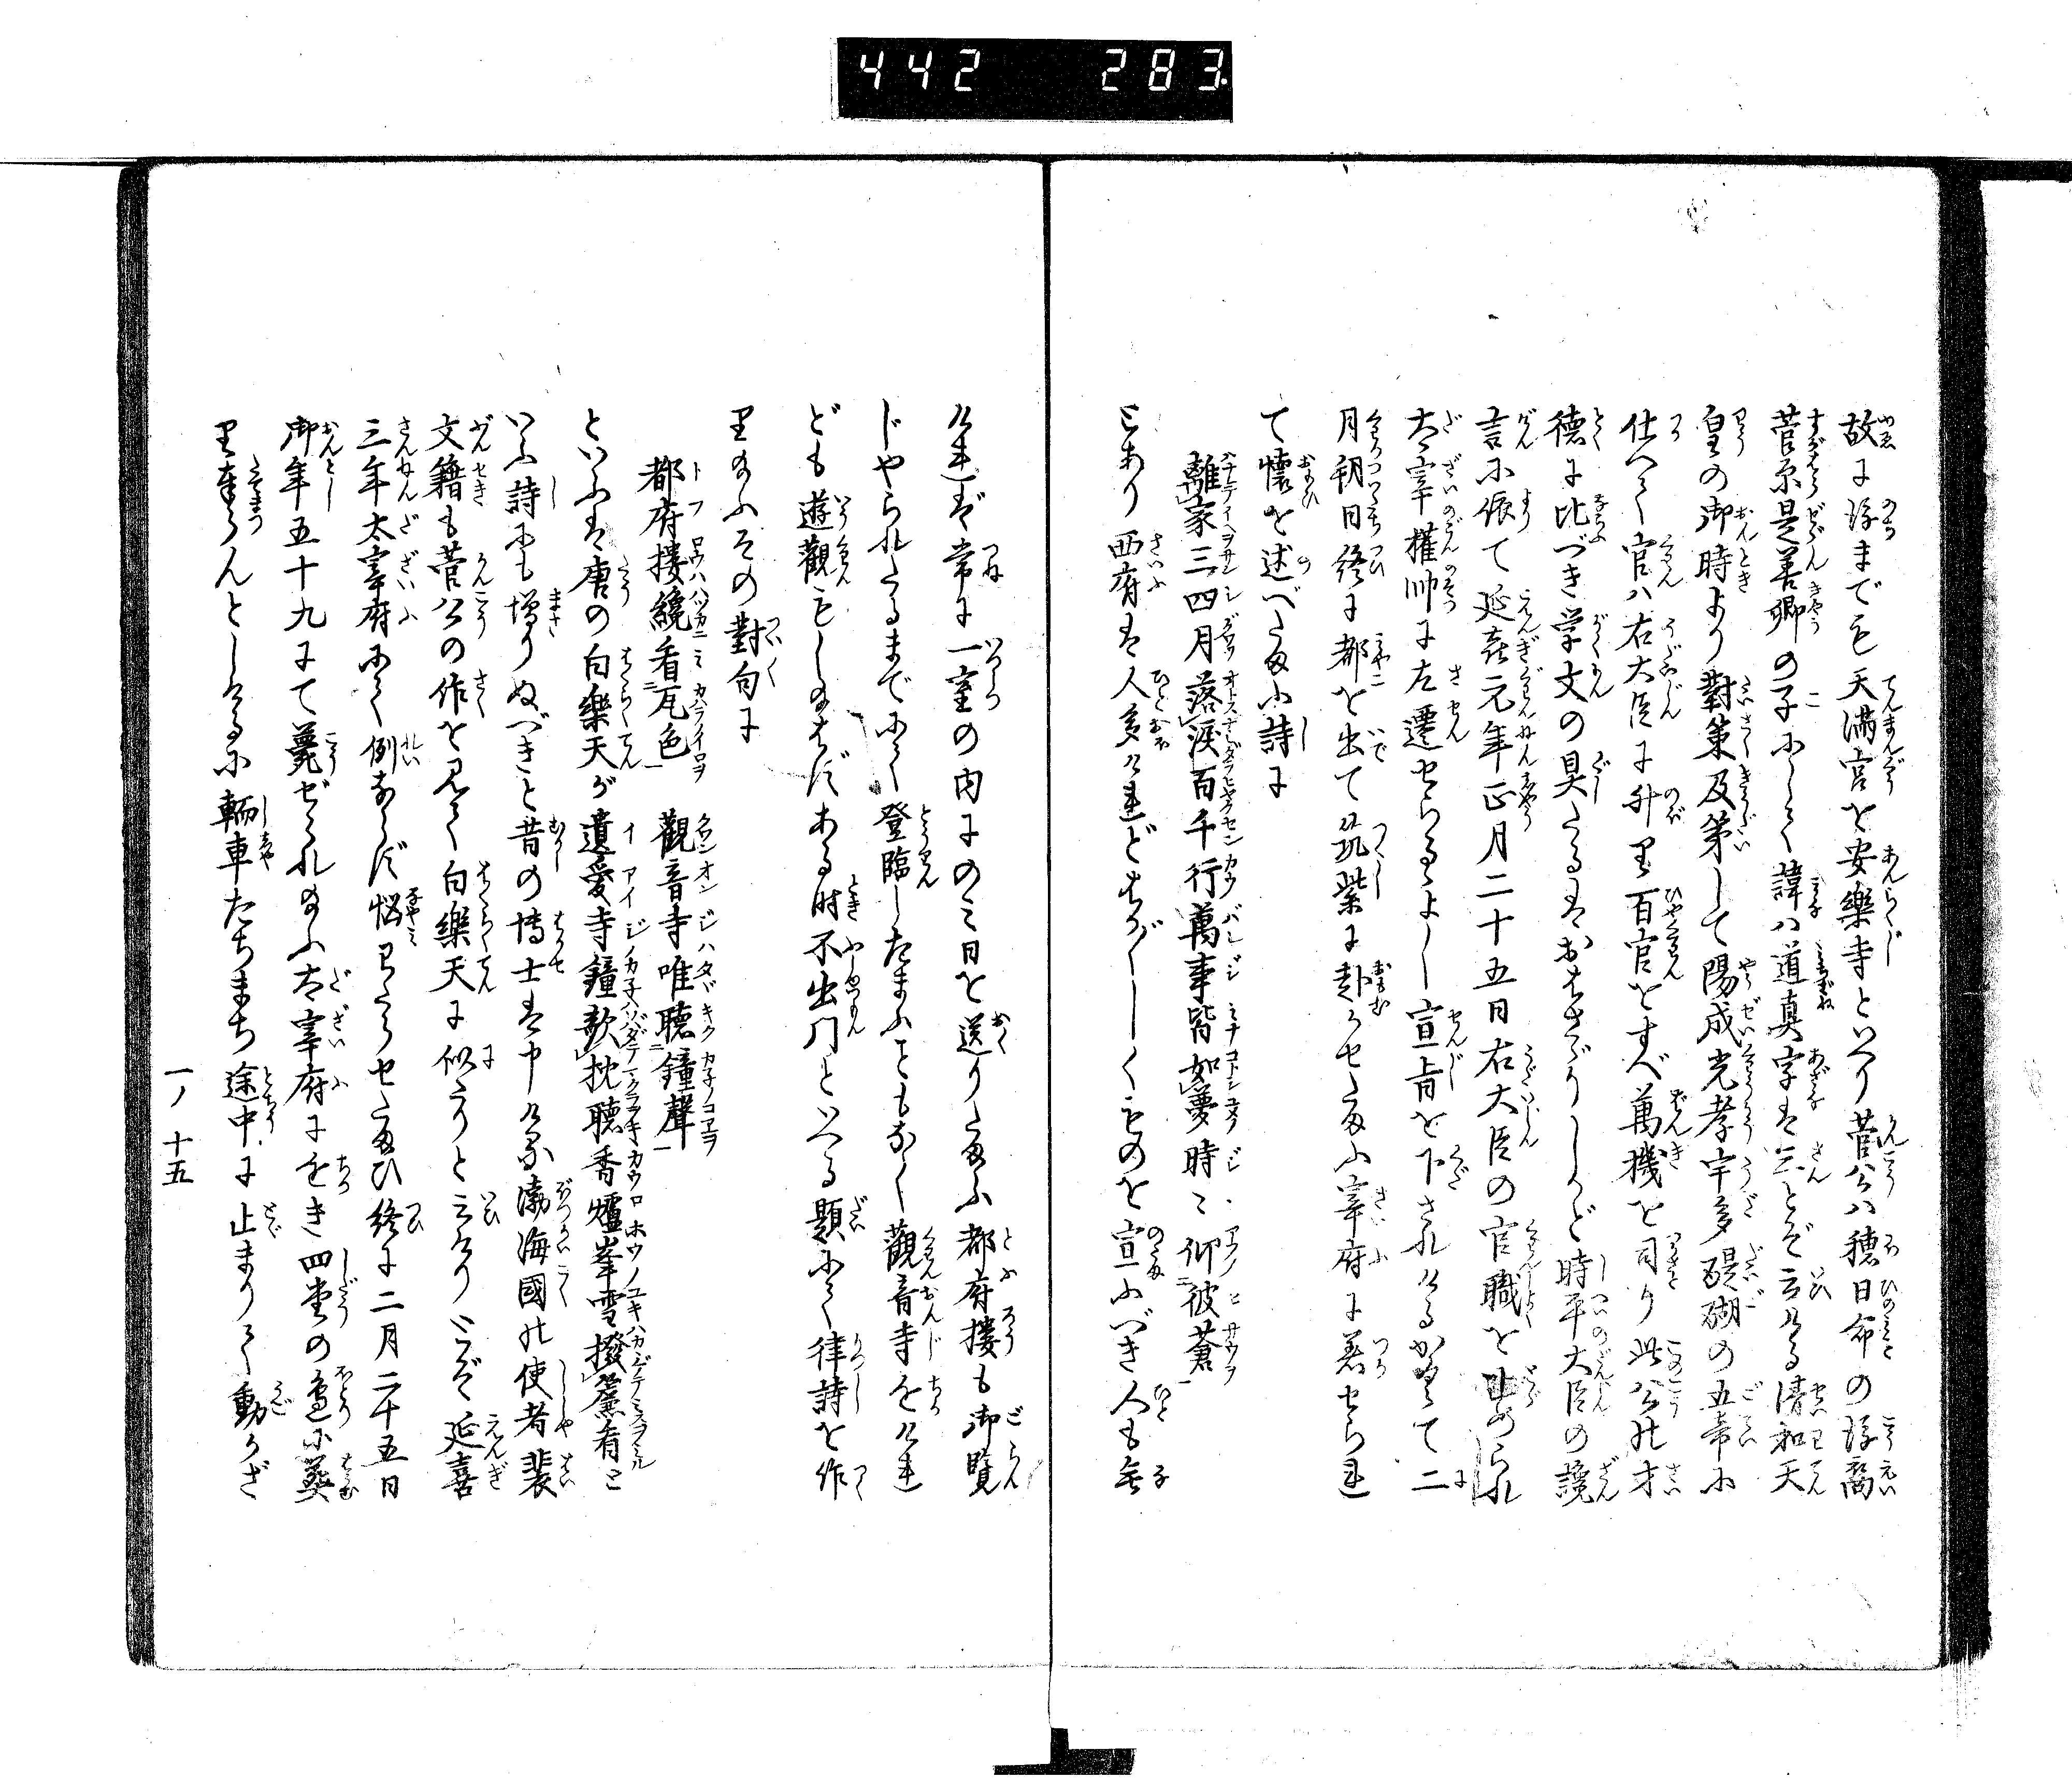 442 283
故に後までも天滿宮を安樂寺といへり菅公ハ穂日命の後裔
菅原是善卿の子にして諱ハ道真字は三とぞ云ける清和天
皇の御時より對策及第して陽成光孝宇多醍醐の五帝に
仕へて官ハ右大臣に升り百官をすべ萬機を司り此公の才
徳に比べき学文の具たるはおはさゞりしかど時平大臣の讒
言に依て延喜元年正月二十五日右大臣の官職を止められ
太宰權帥に左遷せらるよし宣旨を下されけるかくて二
月朔日終に都を出て筑紫に赴かせたまふ宰府に着せられ
て懐を述べたまふ詩に
離家三四月落涙百千行萬事皆如夢時〻仰彼蒼
とあり西府は人多けれどはか〴〵しくものを宣ふべき人も無
ければ常に一室の内にのミ日を送りたまふ都府樓も御覽
じやられたるまでにて登臨したまふこともなく觀音寺もちかけれ
ども遊觀もしたまはずある時不出門といへる題にて律詩を作
りたまふその對句に
都府樓纔看瓦色 觀音寺唯聴鐘聲
といふは唐の白樂天が遺愛寺鐘欹枕聴香爐峯雪撥簾看と
いふ詩にも増りぬべきと昔の博士は申ける渤海國の使者裴
文籍も菅公の作を見て白樂天に似たりと云けりとぞ延喜
三年太宰府にて例ならず悩ミわたらせたまひ終に二月二十五日
御年五十九にて薨ぜられたまふ太宰府にちかき四堂の邊に葬
り奉らんとしけるに轜車たちまち途中に止まりて動かざ
一ノ十五